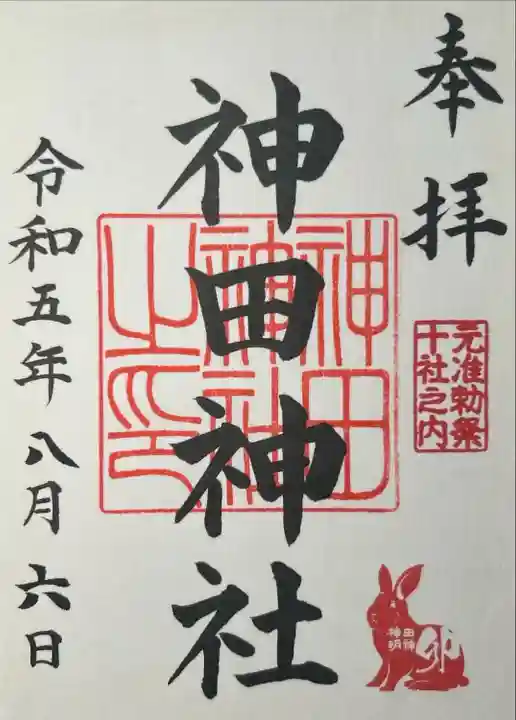 奉拝
元准勅祭
十社之内
卯
神田神社
神田神社之印
令和五年八月六日